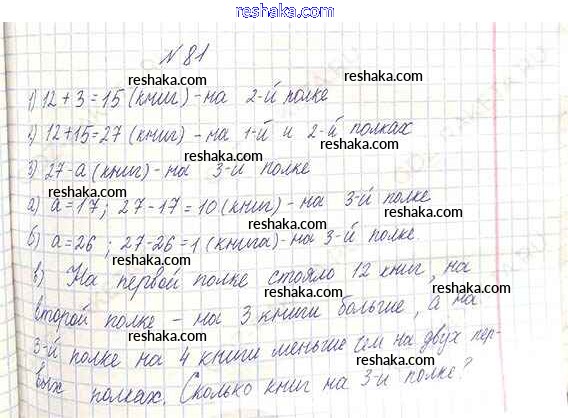 reshaka.com
№ 81
reshaka.com
1) 12 + 3 = 15 (книг) - на 2-й полке
reshaka.com reshaka.com
2) 12+15=27 (книг) - на 1-й и 2-й полках
reshaka.com reshaka.com
3) 27-a (книг) - на 3-й полке
reshaka.com reshaka.com
а) a=17; 27-17=10 (книг) - на 3-й полке
reshaka.com reshaka.com
б) a=26; 27-26=1 (книга) - на 3-й полке
reshaka.com reshaka.com
в) На первой полке стояло 12 книг, на
reshaka.com reshaka.com
второй полке - на 3 книги больше, а на
reshaka.com reshaka.com
3-й полке на 4 книги меньше чем на двух пер-
reshaka.com reshaka.com
вых полках. Сколько книг на 3-й полке?
reshaka.com reshaka.com
reshaka.com